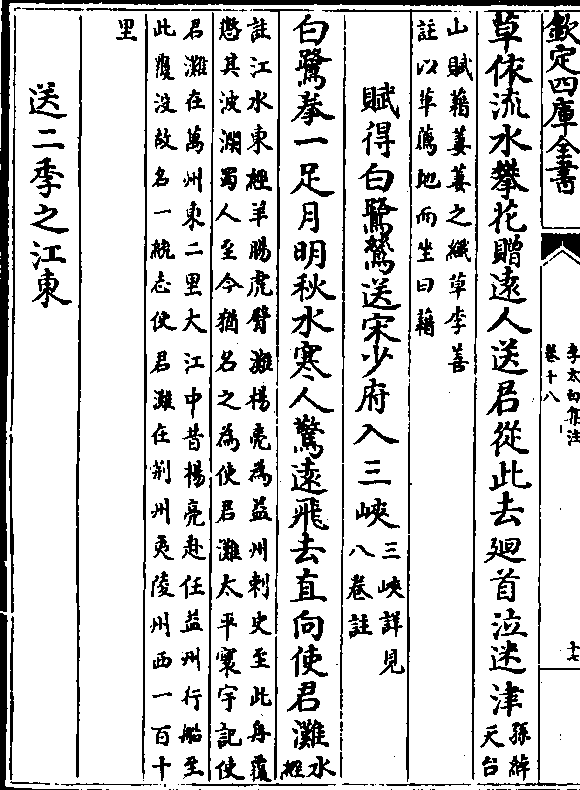 欽定四庫全書
李太白集注
卷十八
十七
草依流水攀花贈遠人送君從此去廻首泣迷津孫綽
天台
山賦藉萋萋之纎草李善
註以草薦地而坐曰藉
賦得白鷺鷥送宋少府入三峽三峽詳見
八卷註
白鷺拳一足月明秋水寒人驚遠飛去直向使君灘水
經
註江水東經羊腸虎臂灘楊亮為益州刺史至此舟覆
懲其波瀾蜀人至今猶名之為使君灘太平寰宇記使
君灘在萬州東二里大江中昔楊亮赴任益州行船至
此覆没故名一統志使君灘在荆州夷陵州西一百十
里
送二季之江東